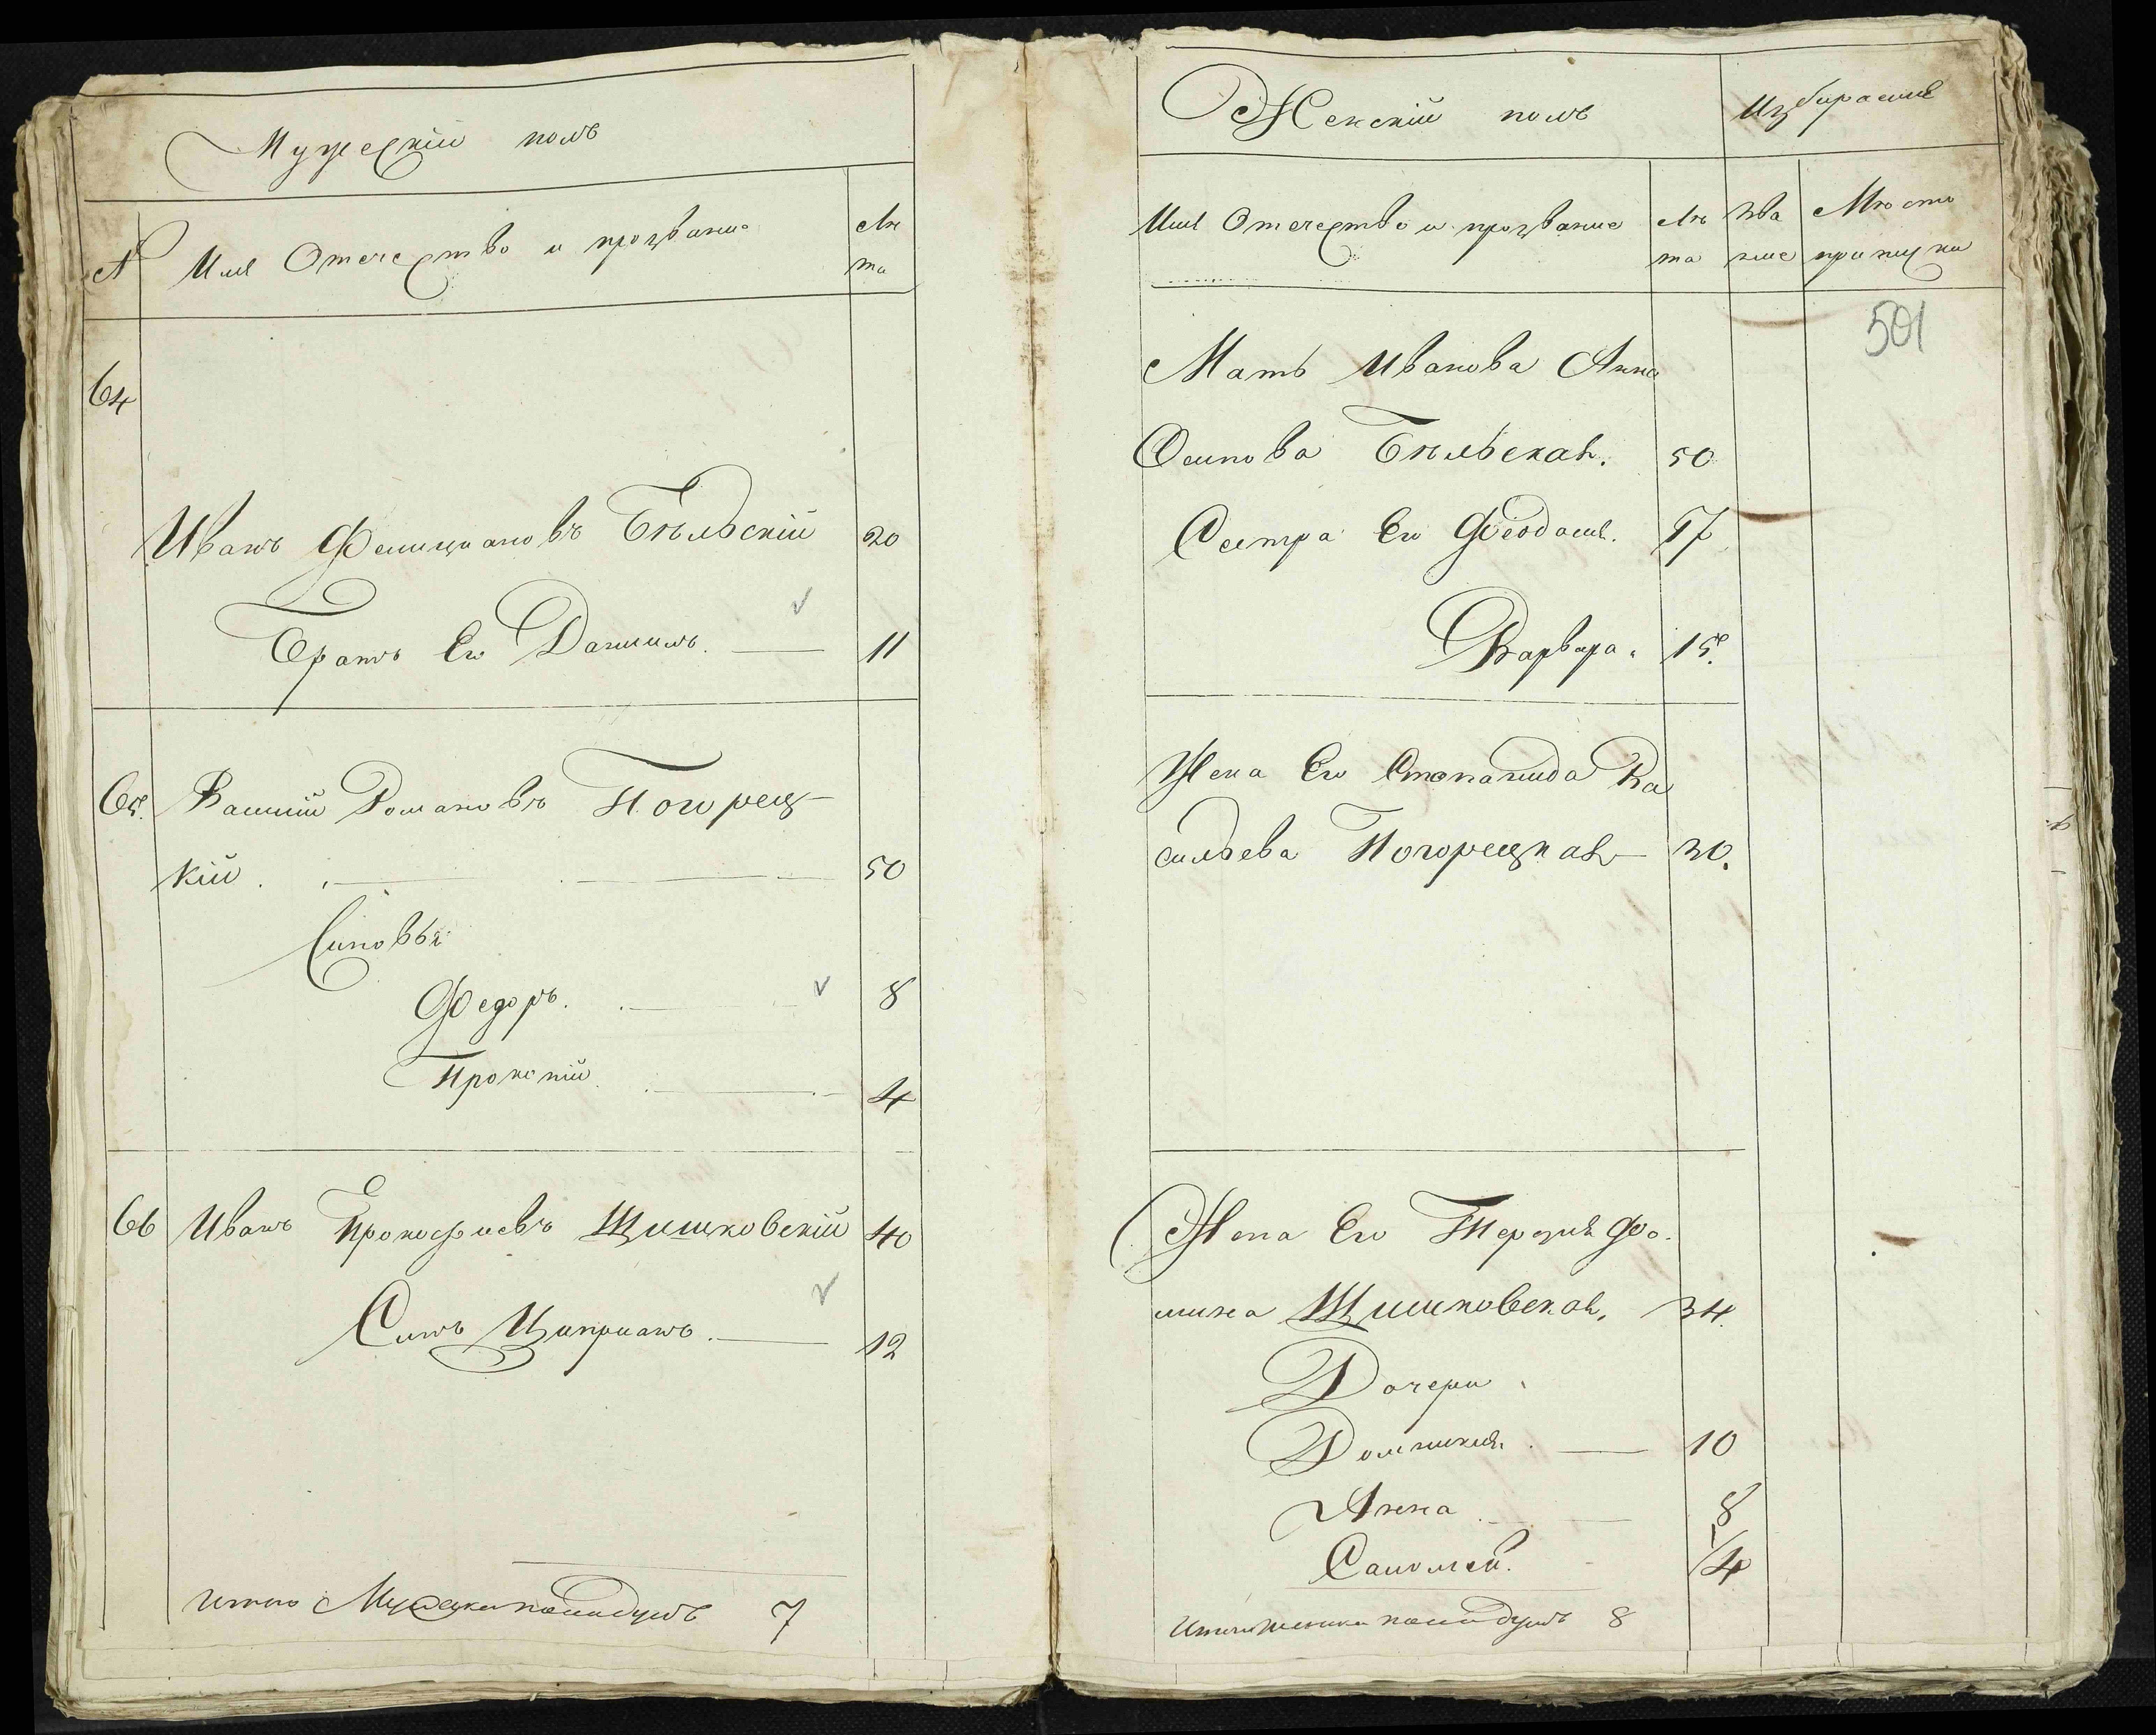 Мужескій полъ
№ Имя Отечество и прозваніе Лѣ
та
64
Иванъ Фелиціановъ Бѣльскій 20
Братъ Его Даниилъ. 11
65. Василій Романовъ Погорец-
кій. 50
Сыновья
Федоръ. 8
Прокопій 4
66 Иванъ Прокофіевъ Щишковскій 40
Сынъ Циприанъ. 12
Итого Мужеска пола душъ 7
Женскій полъ
Имя Отечество и прозваніе Лѣ Зва Мѣсто
та ніе приписки
501
Мать Иванова Анна
Осипова Бѣльская. 50
Сестра Его Феодосія. 17
Варвара. 15.
Жена Его Степанида Ва
сильева Погорецкая 30.
Жена Его Терезія Фо-
мина Щишковская, 34.
Дочери
Домникія. 10
Анна 8
Саломея. 1/4
Итого женска пола душъ 8